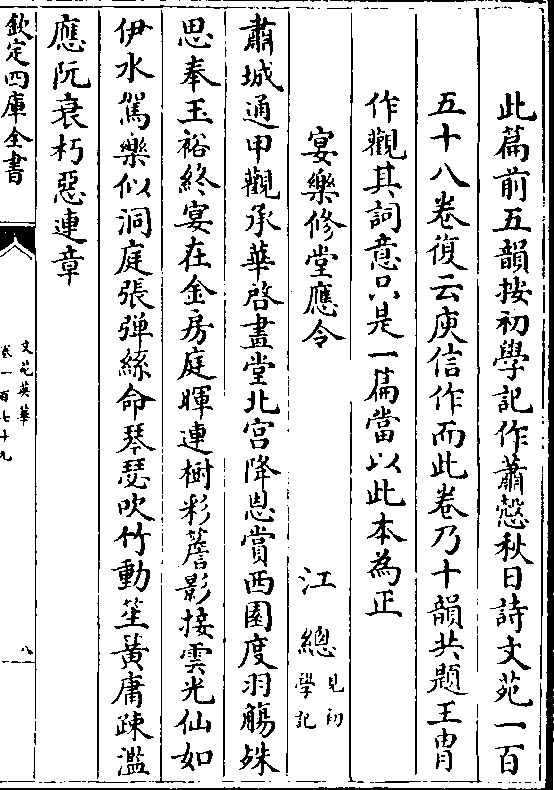 此篇前五韻按初學記作蕭慤秋日詩文苑一百
五十八卷復云庾信作而此卷乃十韻共題王冑
作觀其詞意只是一篇當以此本為正
宴樂修堂應令　江總見初學記
肅城通甲觀承華啓畫堂北宮降恩賞西園度羽觴殊
思奉玉裕終宴在金房庭暉連樹彩簷影接雲光仙如
伊水駕樂似洞庭張彈絲命琴瑟吹竹動笙黃庸疎濫
應阮衰朽惡連章
欽定四庫全書
文苑英華
卷一百七十九
八